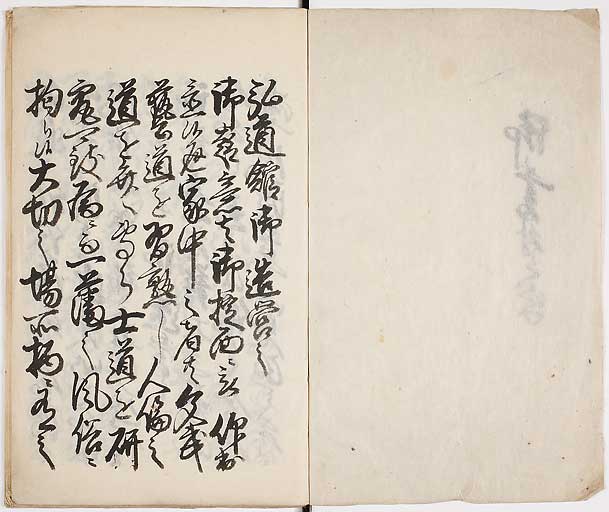 弘道館御造営之
御趣意者御掟面ニ被仰出
候通家中之者共文武
藝道を習熟し人倫之
道を弁へ専ら士道を研
一藩之風俗ニ
拘り候大切之場所柄ニ有之